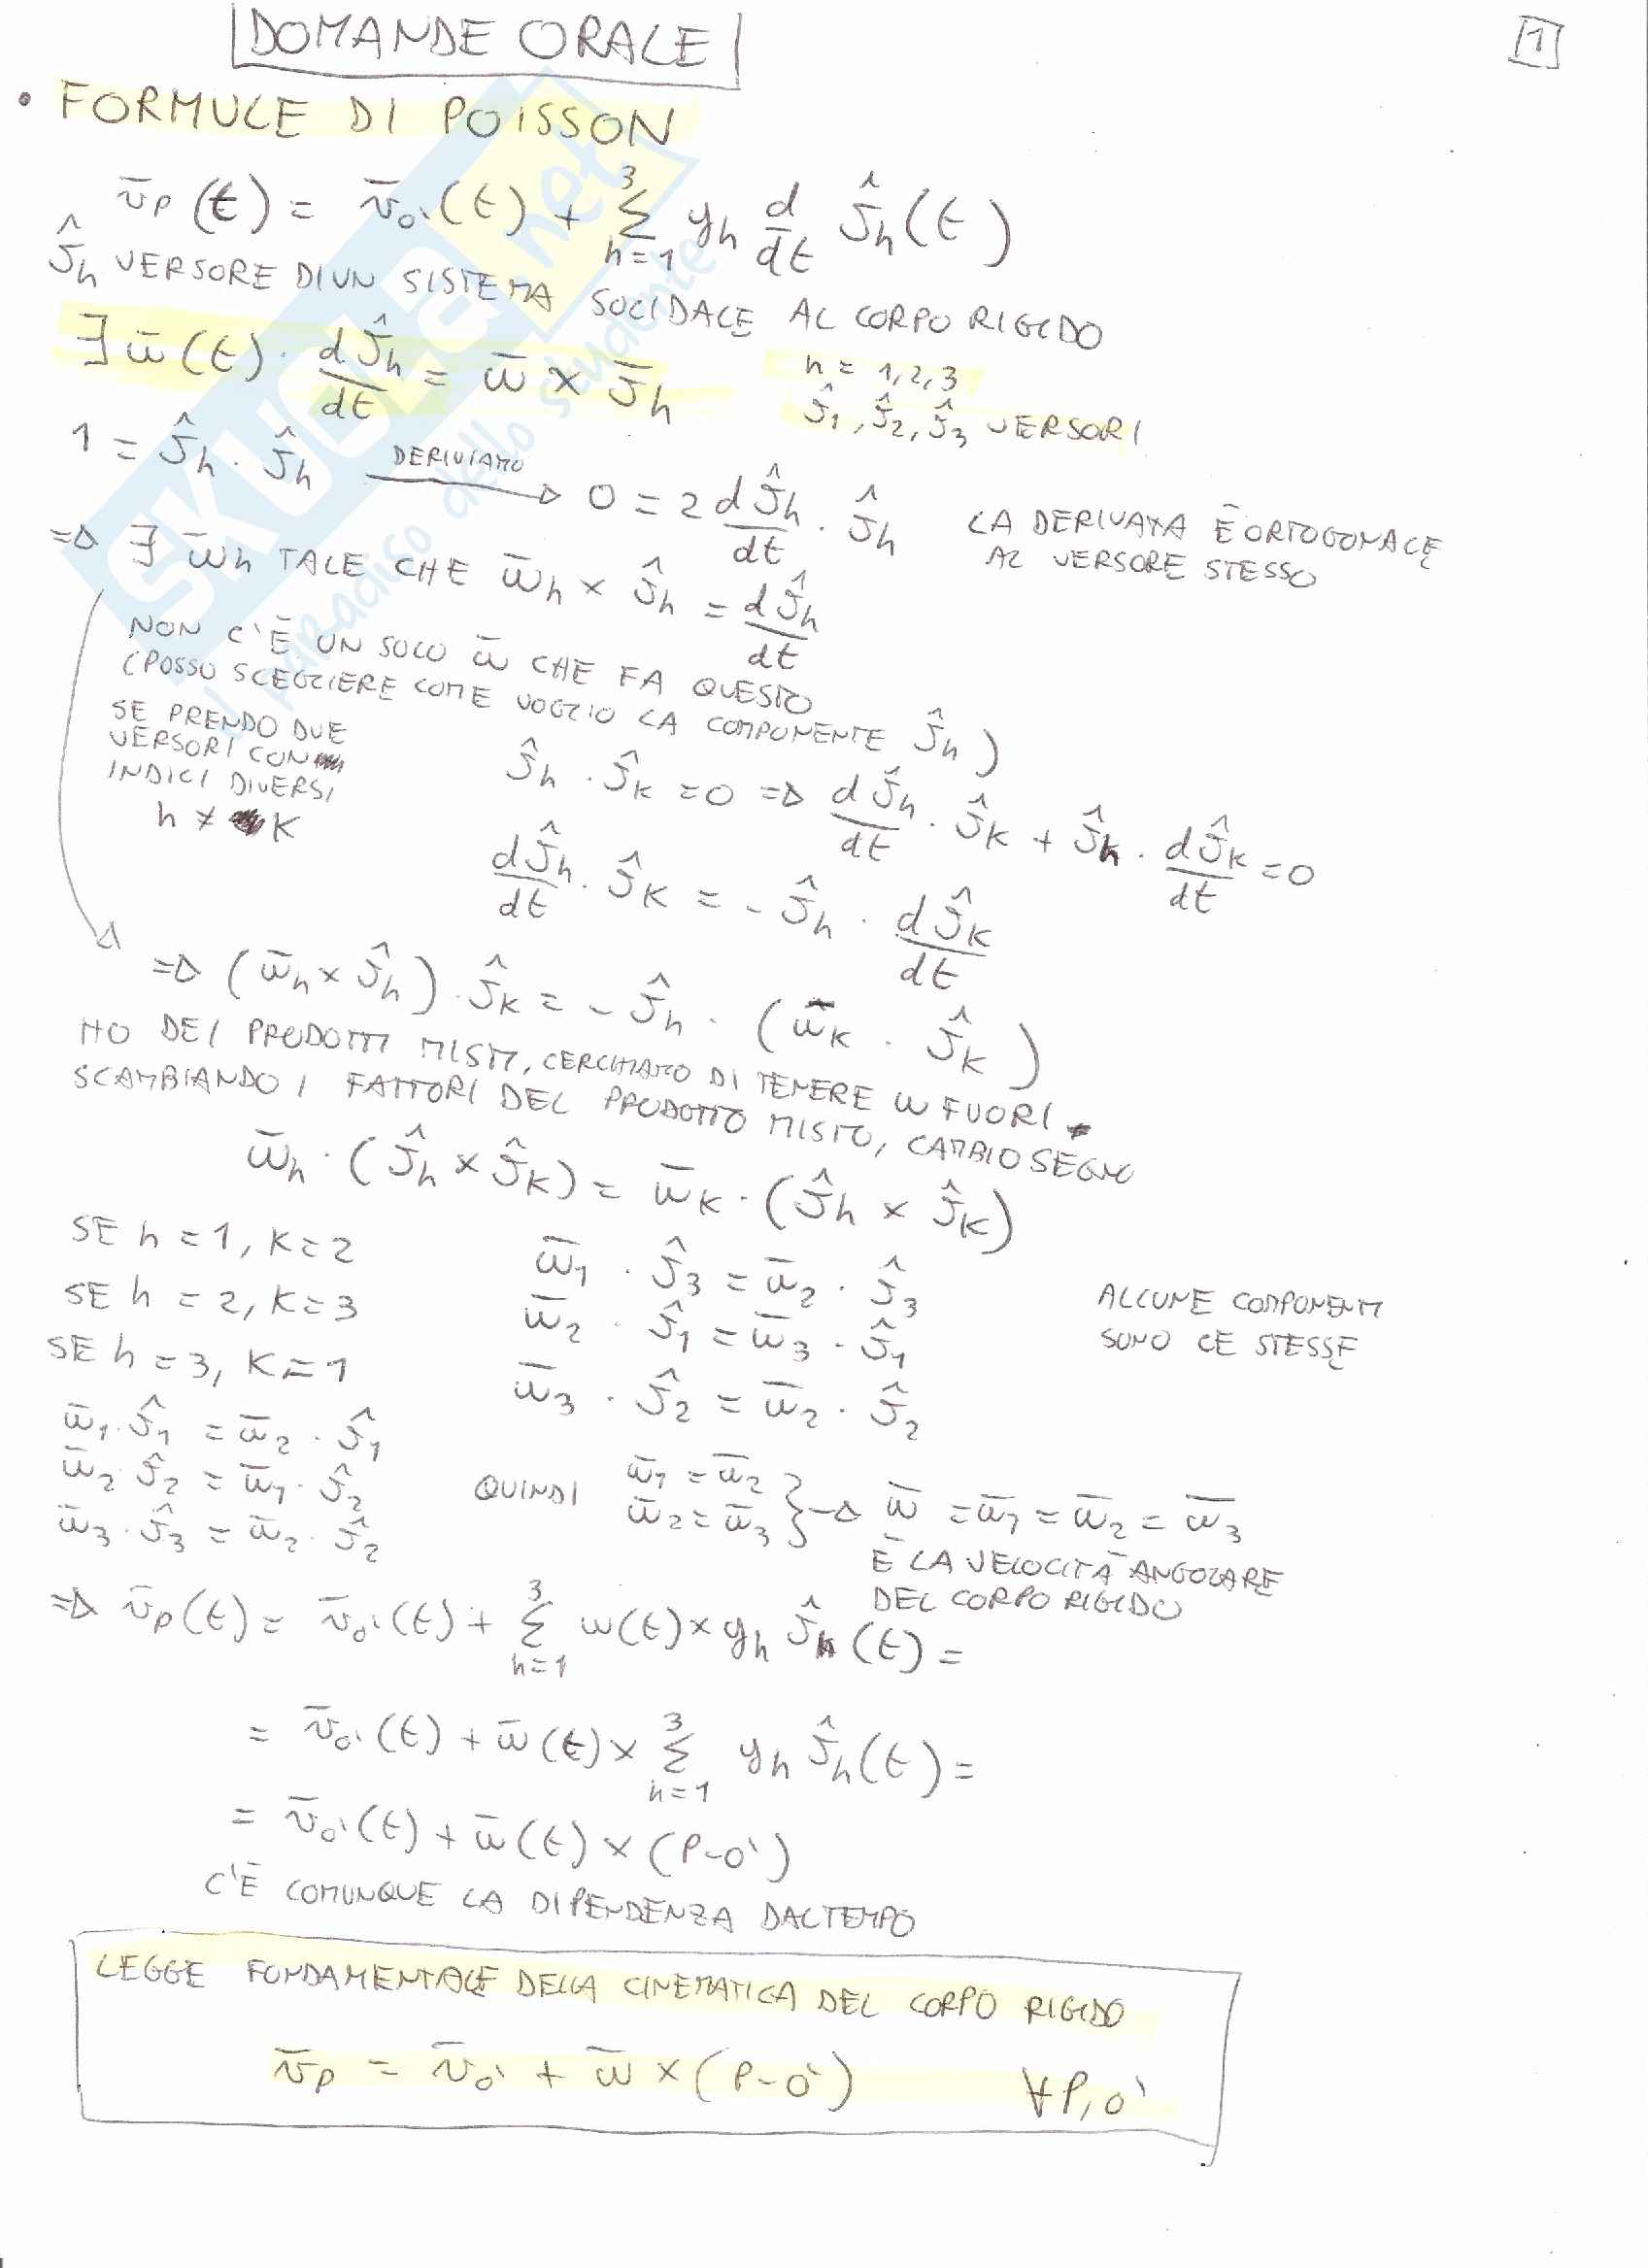 DOMANDE ORALE
1
• FORMULE DI POISSON
v̄p(t) = v̄o'(t) + Σ_{h=1}^{3} yh d/dt ĵh(t)
ĵh VERSORE DI UN SISTEMA SOLIDALE AL CORPO RIGIDO
∃ ω̄(t) · dĵh/dt = ω̄ × j̄h h = 1,2,3
ĵ1, ĵ2, ĵ3 VERSORI
1 = ĵh · ĵh DERIVIAMO → 0 = 2 dĵh/dt · ĵh LA DERIVATA È ORTOGONALE
AL VERSORE STESSO
⇒ ∃ ω̄h TALE CHE ω̄h × ĵh = dĵh/dt
NON C'È UN SOLO ω̄ CHE FA QUESTO
(POSSO SCEGLIERE COME VOGLIO LA COMPONENTE ĵh)
SE PRENDO DUE
VERSORI CON
INDICI DIVERSI
h ≠ K
ĵh · ĵK = 0 ⇒ dĵh/dt · ĵK + ĵh · dĵK/dt = 0
dĵh/dt · ĵK = - ĵh · dĵK/dt
⇒ (ω̄h × ĵh) · ĵK = - ĵh · (ω̄K · ĵK)
HO DEI PRODOTTI MISTI, CERCHIAMO DI TENERE ω FUORI
SCAMBIANDO I FATTORI DEL PRODOTTO MISTO, CAMBIO SEGNO
ω̄h · (ĵh × ĵK) = ω̄K · (ĵh × ĵK)
SE h = 1, K = 2 ω̄1 · ĵ3 = ω̄2 · ĵ3
SE h = 2, K = 3 ω̄2 · ĵ1 = ω̄3 · ĵ1
SE h = 3, K = 1 ω̄3 · ĵ2 = ω̄2 · ĵ2
ALCUNE COMPONENTI
SONO LE STESSE
ω̄1 · ĵ1 = ω̄2 · ĵ1
ω̄2 · ĵ2 = ω̄1 · ĵ2
ω̄3 · ĵ3 = ω̄2 · ĵ2
QUINDI ω̄1 = ω̄2
ω̄2 = ω̄3 } → ω̄ = ω̄1 = ω̄2 = ω̄3
È LA VELOCITÀ ANGOLARE
DEL CORPO RIGIDO
⇒ v̄p(t) = v̄o'(t) + Σ_{h=1}^{3} ω(t) × yh ĵh(t) =
= v̄o'(t) + ω̄(t) × Σ_{h=1}^{3} yh ĵh(t) =
= v̄o'(t) + ω̄(t) × (P-O')
C'È COMUNQUE LA DIPENDENZA DAL TEMPO
LEGGE FONDAMENTALE DELLA CINEMATICA DEL CORPO RIGIDO
v̄p = v̄o' + ω̄ × (P-O') ∀P,O'
SKUOLA.net
il paradiso dello studente